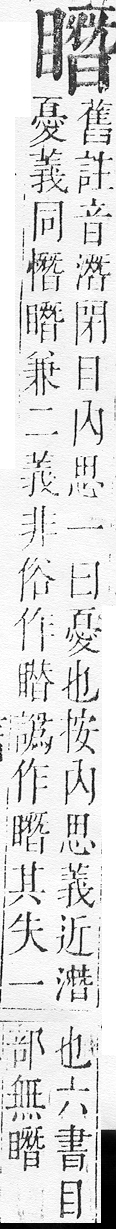 瞷
舊註音潛閉目內思一曰憂也按內思義近潛也六書目
憂義同憯瞷兼二義非俗作瞷譌作瞷其失一部無瞷